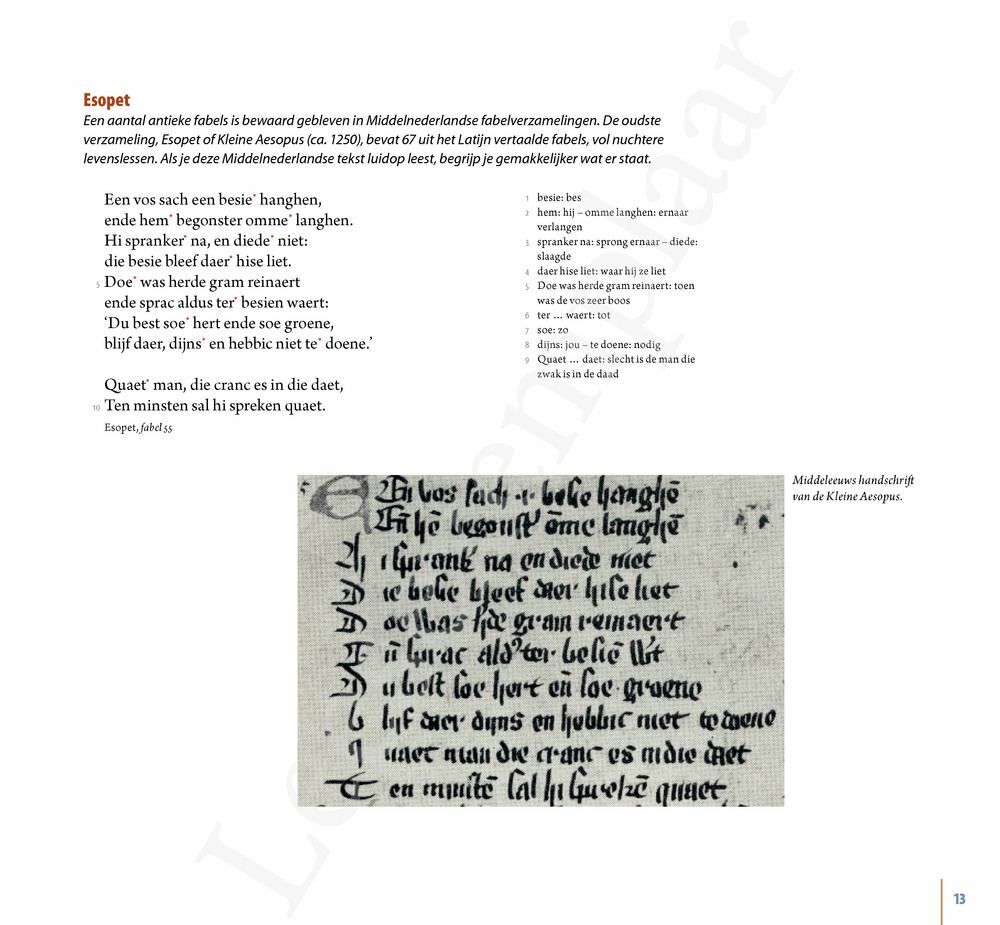 Esopet
Een aantal antieke fabels is bewaard gebleven in Middelnederlandse fabelverzamelingen. De oudste
verzameling, Esopet of Kleine Aesopus (ca. 1250), bevat 67 uit het Latijn vertaalde fabels, vol nuchtere
levenslessen. Als je deze Middelnederlandse tekst luidop leest, begrijp je gemakkelijker wat er staat.
Een vos sach een besie• hanghen,
ende hem• begonster omme• langhen.
Hi spranker• na, en diede• niet:
die besie bleef daer• hise liet.
5 Doe• was herde gram reinaert
ende sprac aldus ter• besien waert:
‘Du best soe• hert ende soe groene,
blijf daer, dijns• en hebbic niet te• doene.’
Quaet• man, die cranc es in die daet,
10 Ten minsten sal hi spreken quaet.
Esopet, fabel 55
1 besie: bes
2 hem: hij – omme langhen: ernaar
verlangen
3 spranker na: sprong ernaar – diede:
slaagde
4 daer hise liet: waar hij ze liet
5 Doe was herde gram reinaert: toen
was de vos zeer boos
6 ter ... waert: tot
7 soe: zo
8 dijns: jou – te doene: nodig
9 Quaet ... daet: slecht is de man die
zwak is in de daad
vos sach besie hanghē
hē omē langhē
na en diede niet
ie besie bleef daer hise liet
oe was gram reinaert
ter besiē
u best soe hert eñ soe groene
lijf daer dijns en hebbic niet te doene
uaet man die cranc es in die daet
en minstē sal hi quaet
Middeleeuws handschrift
van de Kleine Aesopus.
13